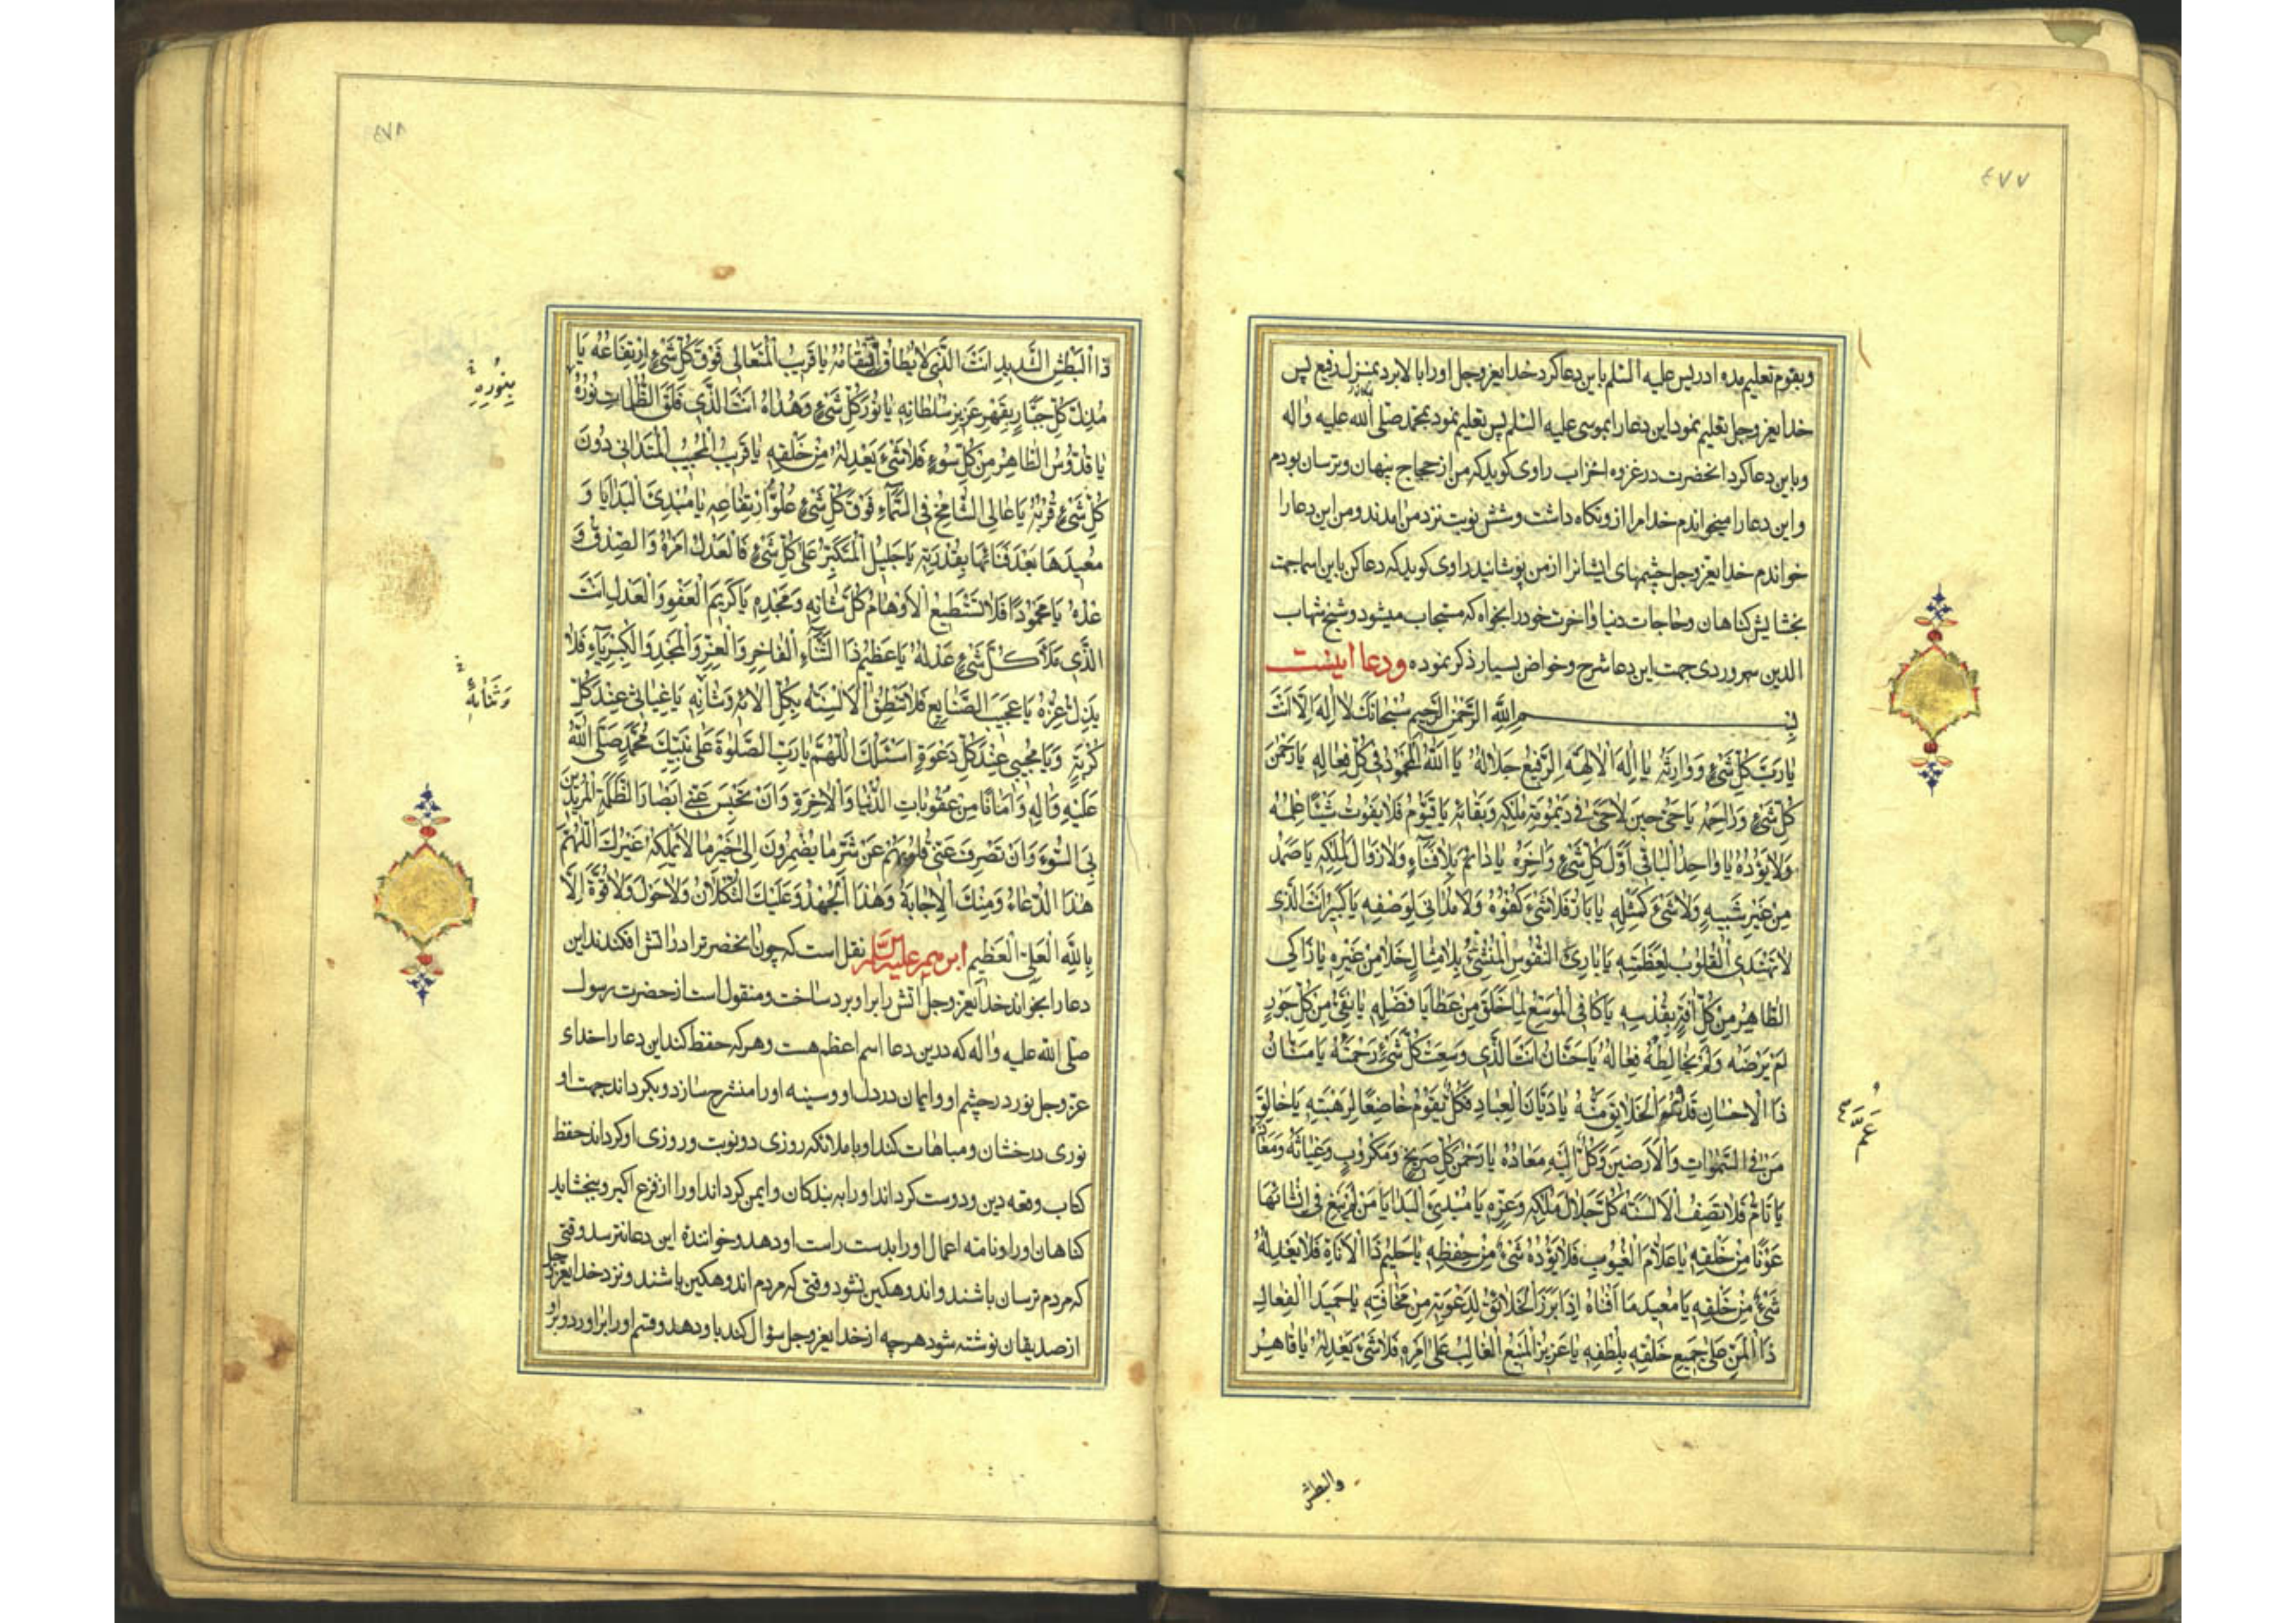 ٤٧٧
وبقوم تعلیم مده ادریس علیه السلم باین دعا کرد خدایعزوجل اورا بالا برد بمنزل رفیع پس
خدایعزوجل تعلیم نمود این دعا را بموسی علیه السلم پس تعلیم نمود بمحمد صلی الله علیه واله
وباین دعا کرد انحضرت در غزوه احزاب راوی کوید که من از حجاج پنهان وترسان بودم
واین دعا را میخواندم خدا مرا ازو نکاه داشت وشش نوبت نزد من امدند ومن این دعا را
خواندم خدایعزوجل چشمهای ایشانرا از من پوشانید راوی کوید که دعا کن باین اسما جهت
بخشایش کناهان وحاجات دنیا واخرت خود را بخواه که مستجاب میشود وشیخ شهاب
الدین سهروردی جهت این دعا شرح وخواص بسیار ذکر نموده ودعا اینست
بِسْمِ اللهِ الرَّحْمٰنِ الرَّحِيمِ سُبْحَانَكَ لَا إِلٰهَ إِلَّا أَنْتَ
يَا رَبَّ كُلِّ شَيْءٍ وَوَارِثَهُ يَا إِلٰهَ الْآلِهَةِ الرَّفِيعَ جَلَالُهُ يَا اَللهُ الْمَحْمُودُ فِي كُلِّ فِعَالِهِ يَا رَحْمٰنَ
كُلِّ شَيْءٍ وَرَاحِمَهُ يَا حَيُّ حِينَ لَا حَيَّ فِي دَيْمُومَةِ مُلْكِهِ وَبَقَائِهِ يَا قَيُّومُ فَلَا يَفُوتُ شَيْئًا عِلْمُهُ
وَلَا يَؤُدُهُ يَا وَاحِدُ الْبَاقِي أَوَّلَ كُلِّ شَيْءٍ وَآخِرَهُ يَا دَائِمُ بِلَا فَنَاءٍ وَلَا زَوَالَ لِمُلْكِهِ يَا صَمَدُ
مِنْ غَيْرِ شَبِيهٍ وَلَا شَيْءَ كَمِثْلِهِ يَا بَارُّ فَلَا شَيْءَ كُفْوُهُ وَلَا مُدَانِيَ لِوَصْفِهِ يَا كَبِيرُ أَنْتَ الَّذِي
لَا تَهْتَدِي الْقُلُوبُ لِعَظَمَتِهِ يَا بَارِئَ النُّفُوسِ الْمُنْشِئُ بِلَا مِثَالٍ خَلَا مِنْ غَيْرِهِ يَا زَاكِي
الطَّاهِرُ مِنْ كُلِّ آفَةٍ بِقُدْسِهِ يَا كَافِي الْمُوَسِّعُ لِمَا خَلَقَ مِنْ عَطَايَا فَضْلِهِ يَا نَقِيُّ مِنْ كُلِّ جَوْرٍ
لَمْ يَرْضَهُ وَلَمْ يُخَالِطْهُ فِعَالُهُ يَا حَنَّانُ أَنْتَ الَّذِي وَسِعَتْ كُلَّ شَيْءٍ رَحْمَتُهُ يَا مَنَّانُ
ذَا الْإِحْسَانِ قَدْ عَمَّ الْخَلَائِقَ مَنُّهُ يَا دَيَّانَ الْعِبَادِ فَكُلٌّ يَقُومُ خَاضِعًا لِرَهْبَتِهِ يَا خَالِقَ
عَمَّ
مَنْ فِي السَّمٰوَاتِ وَالْأَرَضِينَ وَكُلٌّ إِلَيْهِ مَعَادُهُ يَا رَحْمٰنَ كُلِّ صَرِيخٍ وَمَكْرُوبٍ وَغِيَاثَهُ وَمَعَاذَهُ
يَا تَامُّ فَلَا تَصِفُ الْأَلْسِنَةُ كُلَّ جَلَالِ مُلْكِهِ وَعِزِّهِ يَا مُبْدِئَ الْبَدَايَا مَنْ لَمْ يَبْغِ فِي إِنْشَائِهَا
عَوْنًا مِنْ خَلْقِهِ يَا عَلَّامَ الْغُيُوبِ فَلَا يَؤُدُهُ شَيْءٌ مِنْ حِفْظِهِ يَا حَلِيمُ ذَا الْأَنَاةِ فَلَا يَعْدِلُهُ
شَيْءٌ مِنْ خَلْقِهِ يَا مُعِيدَ مَا أَفْنَاهُ إِذَا بَرَزَ الْخَلَائِقُ لِدَعْوَتِهِ مِنْ مَخَافَتِهِ يَا حَمِيدَ الْفِعَالِ
ذَا الْمَنِّ عَلَى جَمِيعِ خَلْقِهِ بِلُطْفِهِ يَا عَزِيزُ الْمَنِيعُ الْغَالِبُ عَلَى أَمْرِهِ فَلَا شَيْءَ يَعْدِلُهُ يَا قَاهِرُ
والبطش
٤٧٨
ذَا الْبَطْشِ الشَّدِيدِ أَنْتَ الَّذِي لَا يُطَاقُ انْتِقَامُهُ يَا قَرِيبُ الْمُتَعَالِي فَوْقَ كُلِّ شَيْءٍ ارْتِفَاعُهُ يَا
مُذِلَّ كُلِّ جَبَّارٍ بِقَهْرِ عَزِيزِ سُلْطَانِهِ يَا نُورَ كُلِّ شَيْءٍ وَهُدَاهُ أَنْتَ الَّذِي فَلَقَ الظُّلُمَاتِ نُورُهُ
بِنُورِهِ
يَا قُدُّوسُ الطَّاهِرُ مِنْ كُلِّ سُوءٍ فَلَا شَيْءَ يَعْدِلُهُ مِنْ خَلْقِهِ يَا قَرِيبُ الْمُجِيبُ الْمُتَدَانِي دُونَ
كُلِّ شَيْءٍ قُرْبُهُ يَا عَالِي الشَّامِخُ فِي السَّمَاءِ فَوْقَ كُلِّ شَيْءٍ عُلُوُّ ارْتِفَاعِهِ يَا مُبْدِئَ الْبَدَايَا وَ
مُعِيدَهَا بَعْدَ فَنَائِهَا بِقُدْرَتِهِ يَا جَلِيلُ الْمُتَكَبِّرُ عَلَى كُلِّ شَيْءٍ فَالْعَدْلُ أَمْرُهُ وَالصِّدْقُ وَ
عْدُهُ يَا مَحْمُودًا فَلَا تَسْتَطِيعُ الْأَوْهَامُ كُلَّ ثَنَائِهِ وَمَجْدِهِ يَا كَرِيمَ الْعَفْوِ وَالْعَدْلِ أَنْتَ
الَّذِي مَلَأَ كُلَّ شَيْءٍ عَدْلُهُ يَا عَظِيمُ ذَا الثَّنَاءِ الْفَاخِرِ وَالْعِزِّ وَالْمَجْدِ وَالْكِبْرِيَاءِ فَلَا
يَذِلُّ عِزُّهُ يَا عَجِيبَ الصَّنَايِعِ فَلَا تَنْطِقُ الْأَلْسِنَةُ بِكُلِّ آلَائِهِ وَثَنَائِهِ يَا غِيَاثِي عِنْدَ كُلِّ
وَثَنَائِهِ
كُرْبَةٍ وَيَا مُجِيبِي عِنْدَ كُلِّ دَعْوَةٍ أَسْئَلُكَ اللّٰهُمَّ يَا رَبِّ الصَّلٰوةَ عَلَى نَبِيِّكَ مُحَمَّدٍ صَلَّى اللهُ
عَلَيْهِ وَآلِهِ وَأَمَانًا مِنْ عُقُوبَاتِ الدُّنْيَا وَالْآخِرَةِ وَأَنْ تَحْبِسَ عَنِّي أَبْصَارَ الظَّلَمَةِ الْمُرِيدِينَ
بِيَ السُّوءَ وَأَنْ تَصْرِفَ عَنِّي قُلُوبَهُمْ عَنْ شَرِّ مَا يُضْمِرُونَ إِلَى خَيْرِ مَا لَا يَمْلِكُهُ غَيْرُكَ اللّٰهُمَّ
هٰذَا الدُّعَاءُ وَمِنْكَ الْإِجَابَةُ وَهٰذَا الْجُهْدُ وَعَلَيْكَ التُّكْلَانُ وَلَا حَوْلَ وَلَا قُوَّةَ إِلَّا
بِاللهِ الْعَلِيِّ الْعَظِيمِ ابرهیم علیه السلم نقل است که چون انحضرترا در اتش افکندند این
دعا را بخواند خدایعزوجل اتش را بر او برد ساخت ومنقول است از حضرت رسول
صلی الله علیه واله که در این دعا اسم اعظم هست وهرکه حفظ کند این دعا را خدای
عزوجل نور در چشم او وایمان در دل او وسینه اورا منشرح سازد وبکرداند جهت او
نوری درخشان ومباهات کند او با ملائکه روزی دو نوبت وروزی او کرداند حفظ
کتاب وفقه دین ودوست کرداند اورا به بندکان وایمن کرداند اورا از فزع اکبر وببخشاید
کناهان اورا ونامه اعمال اورا بدست راست او دهد وخواننده این دعا نترسد وقتی
که مردم ترسان باشند واندوهکین نشود وقتی که مردم اندوهکین باشند ونزد خدایعزوجل
از صدیقان نوشته شود هرچه از خدایعزوجل سؤال کند باو دهد وقسم اورا براورد وبر او